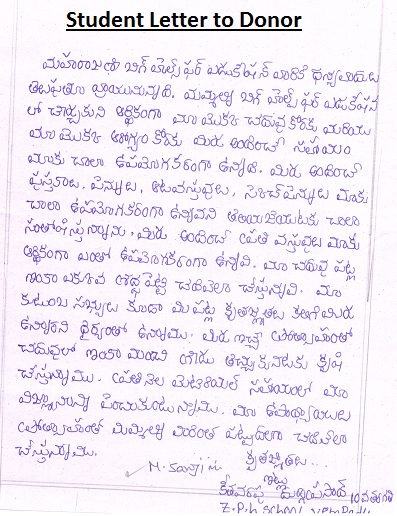 Student Letter to Donor
మహారాజశ్రీ బిగ్ హెల్ప్ ఫర్ ఎడుకేషన్ వారికి ధన్యవాదులు
తెలుపుతూ వ్రాయునున్నది. మమ్మల్ని బిగ్ హెల్ప్ ఫర్ ఎడుకేషన
లో చేర్చుకుని ఆర్థికంగా మా యొక్క చదువు కొరకు మరియు
మా యొక్క ఆరోగ్యం కొరకు మీరు అందించే సహాయం
మాకు చాలా ఉపయోగకరంగా ఉన్నది. మీరు అందించే
పుస్తకాలు, పెన్నులు, ఆటవస్తువులు, స్కెచ్ పెన్నులు మాకు
చాలా ఉపయోగకరంగా ఉన్నవని తెలియజేయుటకు చాలా
సంతోషిస్తున్నాను. మీరు అందించే ప్రతి వస్తువులు మాకు
ఆర్థికంగా ఎంతో ఉపయోగకరంగా ఉన్నవి. మా చదువు పట్ల
ఇంకా ఎక్కువ శ్రద్ధ పెట్టి చదివేలా చేస్తున్నవి. మా
కుటుంబ సభ్యులు కూడా మీ పట్ల కృతజ్ఞతలు కలిగి
ఉన్నారని ధైర్యంతో ఉన్నాము. మీరు ఇచ్చే ప్రోత్సాహంతో
చదువులో ఇంకా మంచి గ్రేడు తెచ్చుకునుటకు కృషి
చేస్తున్నాము. ప్రతి నెల మెటీరియల్ సహాయంతో మా
విజ్ఞానాన్ని పెంచుకుంటున్నాము. మా ఉపాధ్యాయులు
ప్రోత్సాహంతో మిమ్మల్ని మరింత పట్టుదలగా చదివేలా
చేస్తున్నాము.
కృతజ్ఞతలు...
ఇట్లు
దుర్గాప్రసాద్ 10వ తరగతి
Z.P.H School